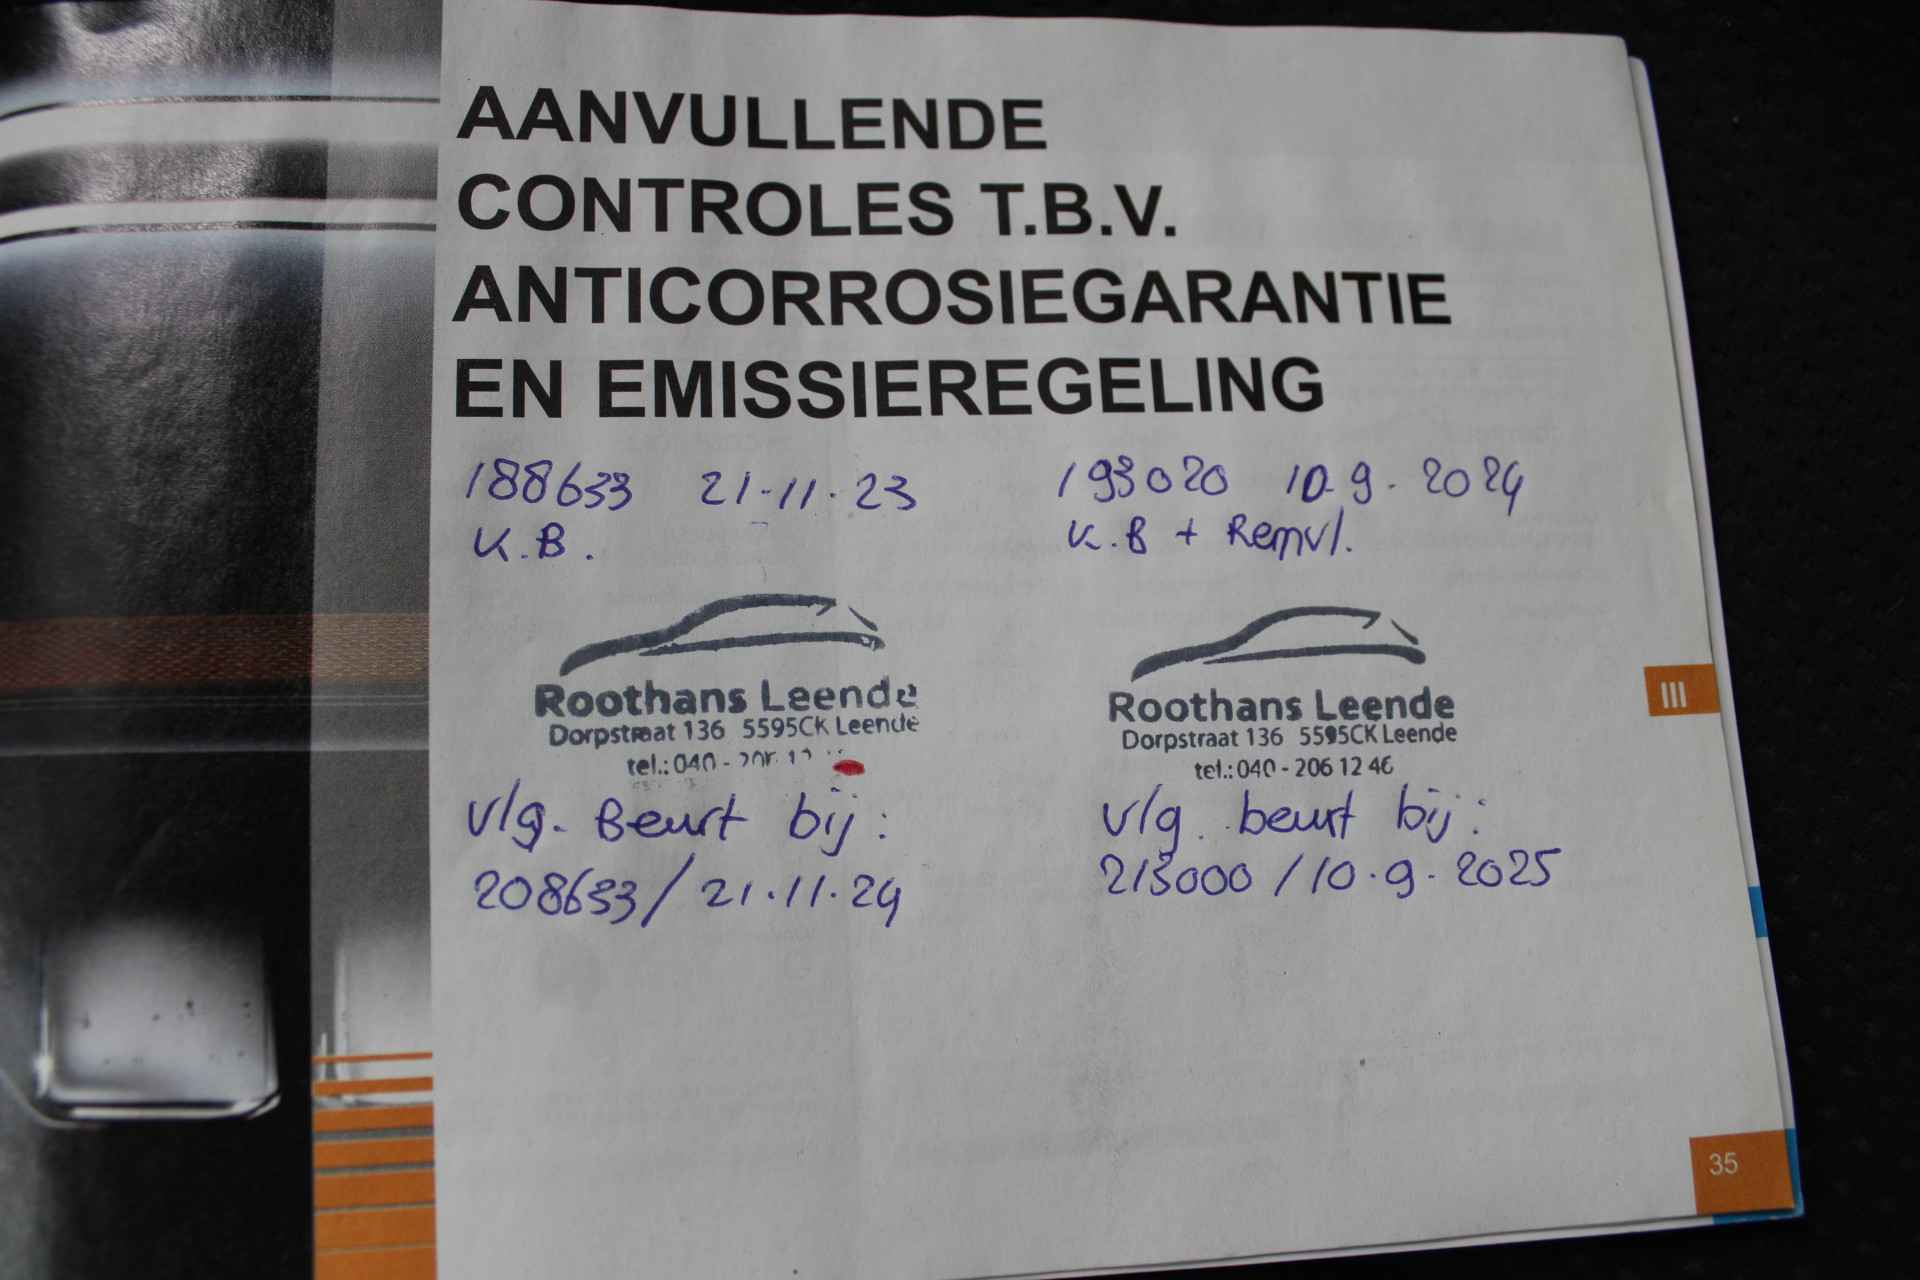 AANVULLENDE
CONTROLES T.B.V.
ANTICORROSIEGARANTIE
EN EMISSIEREGELING
188633 21-11-23
K.B.
Roothans Leende
Dorpstraat 136 5595CK Leende
tel.: 040 -
vlg. Beurt bij:
208633/21.11.24
193020 10.9.2024
K.B + Remvl.
Roothans Leende
Dorpstraat 136 5595CK Leende
tel.: 040 - 206 12 46
vlg. beurt bij:
213000/10.9.2025
III
35